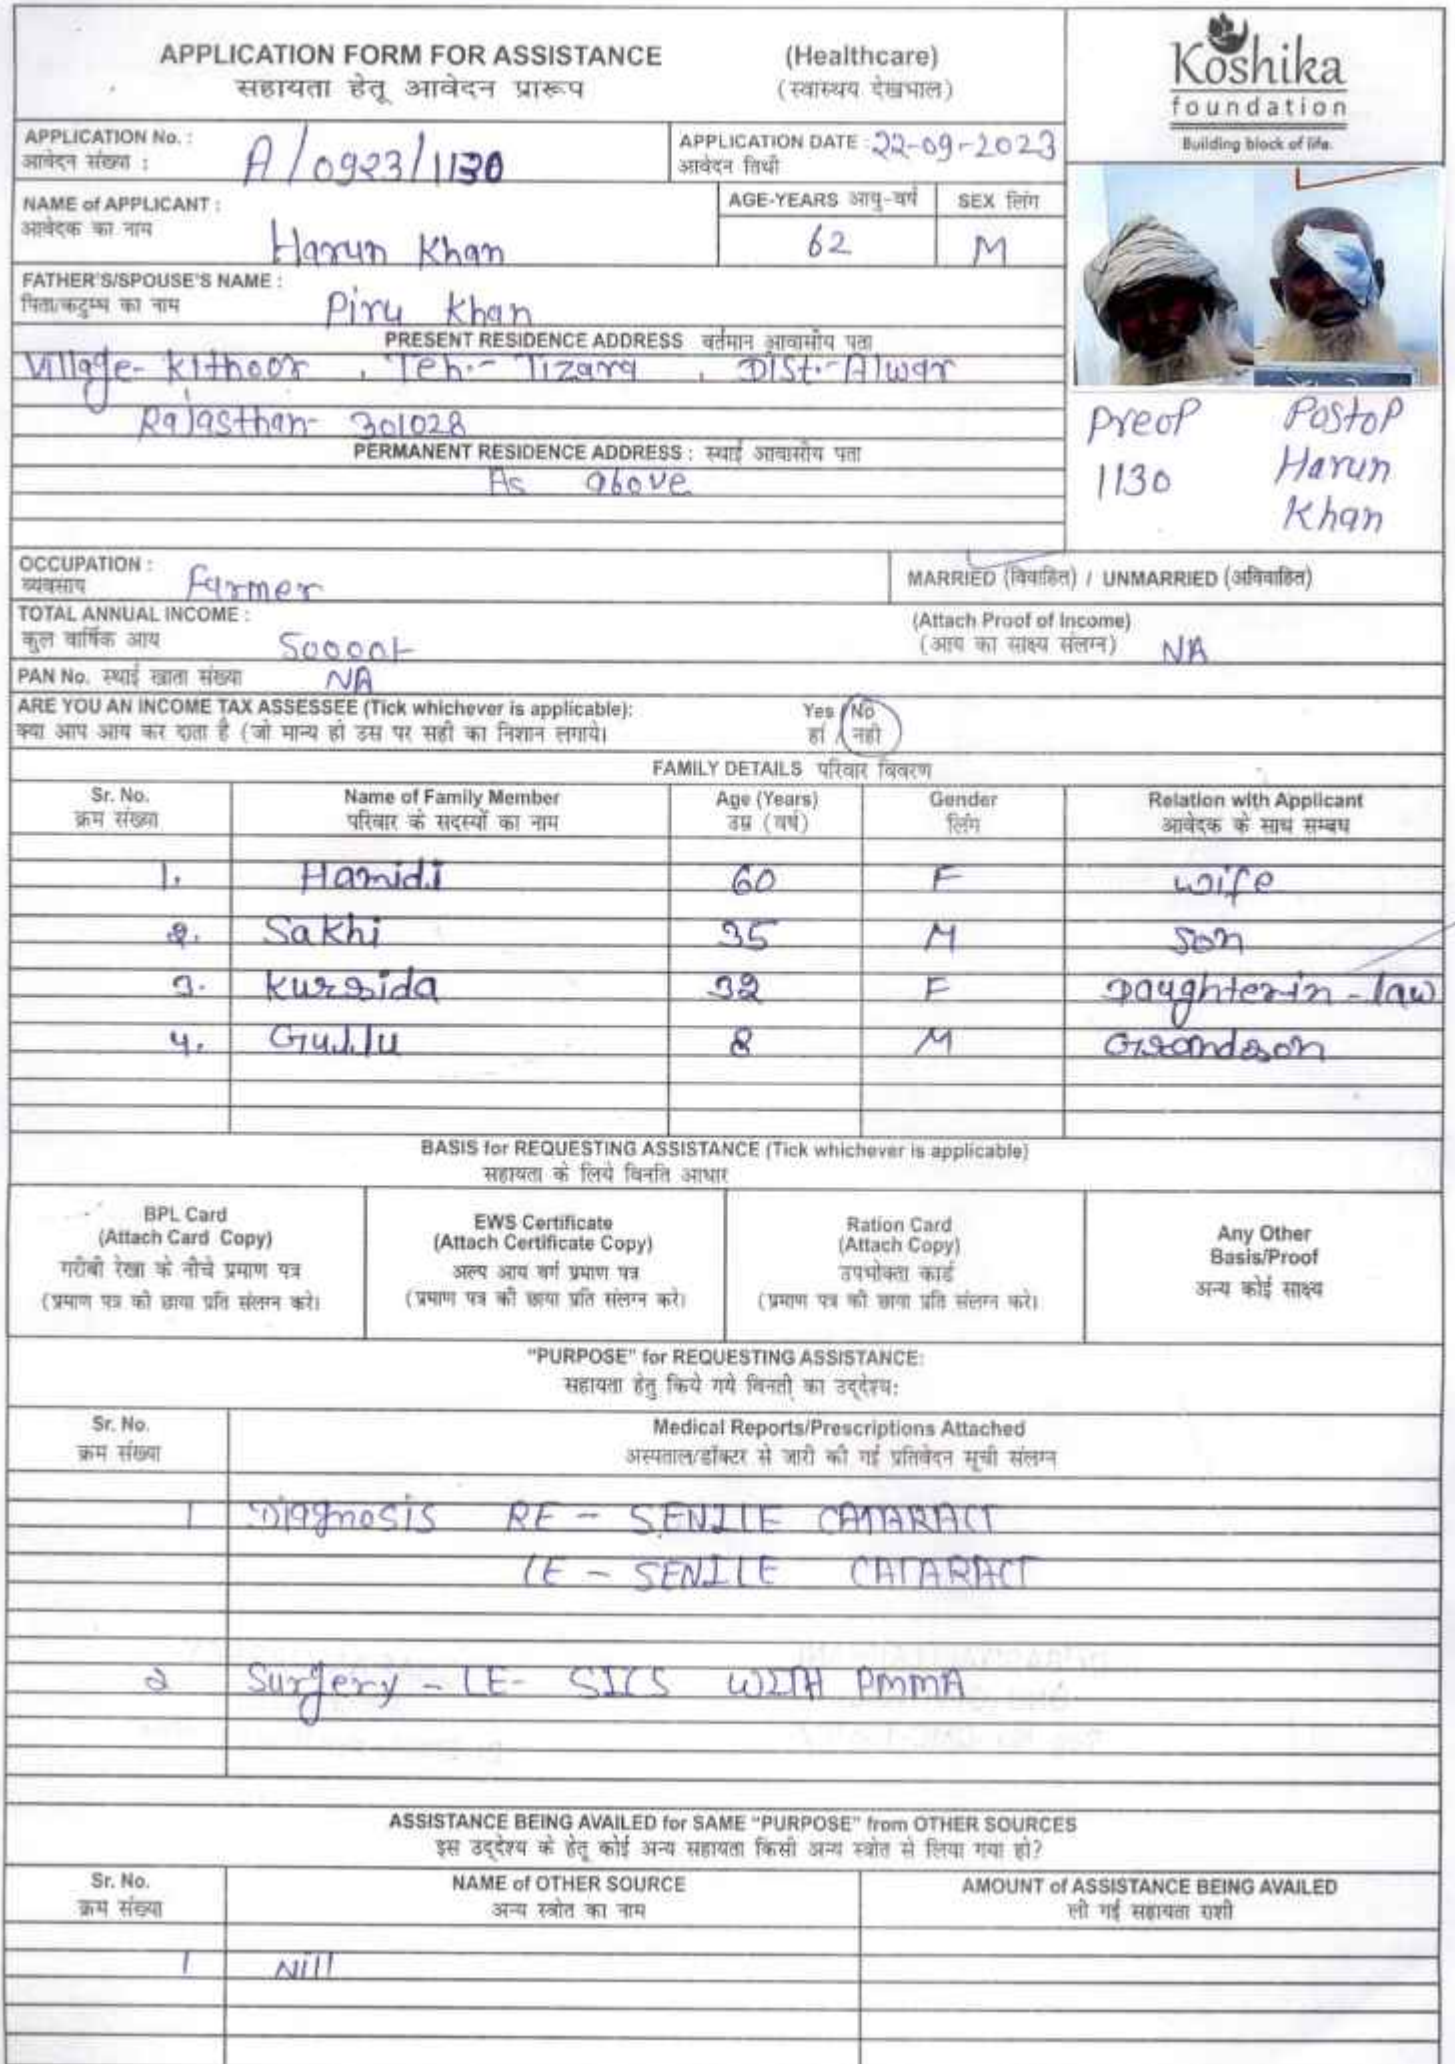 APPLICATION FORM FOR ASSISTANCE (Healthcare)
सहायता हेतू आवेदन प्रारूप (स्वास्थय देखभाल)
Koshika
foundation
Building block of life.
APPLICATION No. : A/0923/1130
आवेदन संख्या :
APPLICATION DATE : 22-09-2023
आवेदन तिथी
NAME of APPLICANT : Harun Khan
आवेदक का नाम
AGE-YEARS आयु-वर्ष 62
SEX लिंग M
FATHER'S/SPOUSE'S NAME : Piru Khan
पिता/कटुम्ध का नाम
PRESENT RESIDENCE ADDRESS वर्तमान आवासीय पता
Village- Kithoor , Teh.- Tizara , Dist.- Alwar
Rajasthan- 301028
PERMANENT RESIDENCE ADDRESS : स्थाई आवासीय पता
As above
Preop Postop
1130 Harun
Khan
OCCUPATION : Farmer
व्यवसाय
MARRIED (विवाहित) / UNMARRIED (अविवाहित)
TOTAL ANNUAL INCOME : 50000/-
कुल वार्षिक आय
(Attach Proof of Income)
(आय का साक्ष्य संलग्न) NA
PAN No. स्थाई खाता संख्या NA
ARE YOU AN INCOME TAX ASSESSEE (Tick whichever is applicable): Yes / No
क्या आप आय कर दाता है (जो मान्य हो उस पर सही का निशान लगाये। हां / नही
FAMILY DETAILS परिवार विवरण
Sr. No. Name of Family Member Age (Years) Gender Relation with Applicant
क्रम संख्या परिवार के सदस्यों का नाम उम्र (वर्ष) लिंग आवेदक के साथ सम्बध
1. Hamidi 60 F wife
2. Sakhi 35 M Son
3. Kursida 32 F Daughterin-law
4. Gullu 8 M Grandson
BASIS for REQUESTING ASSISTANCE (Tick whichever is applicable)
सहायता के लिये विनति आधार
BPL Card
(Attach Card Copy)
गरीबी रेखा के नीचे प्रमाण पत्र
(प्रमाण पत्र की छाया प्रति संलग्न करे।
EWS Certificate
(Attach Certificate Copy)
अल्प आय वर्ग प्रमाण पत्र
(प्रमाण पत्र की छाया प्रति संलग्न करे।
Ration Card
(Attach Copy)
उपभोक्ता कार्ड
(प्रमाण पत्र की छाया प्रति संलग्न करे।
Any Other
Basis/Proof
अन्य कोई साक्ष्य
"PURPOSE" for REQUESTING ASSISTANCE:
सहायता हेतु किये गये विनती का उद्देश्य:
Sr. No. Medical Reports/Prescriptions Attached
क्रम संख्या अस्पताल/डॉक्टर से जारी की गई प्रतिवेदन सूची संलग्न
1 Diagnosis RE - SENILE CATARACT
LE - SENILE CATARACT
2 Surgery - LE- SICS WITH PMMA
ASSISTANCE BEING AVAILED for SAME "PURPOSE" from OTHER SOURCES
इस उद्देश्य के हेतू कोई अन्य सहायता किसी अन्य स्त्रोत से लिया गया हो?
Sr. No. NAME of OTHER SOURCE AMOUNT of ASSISTANCE BEING AVAILED
क्रम संख्या अन्य स्त्रोत का नाम ली गई सहायता राशी
1 Nill